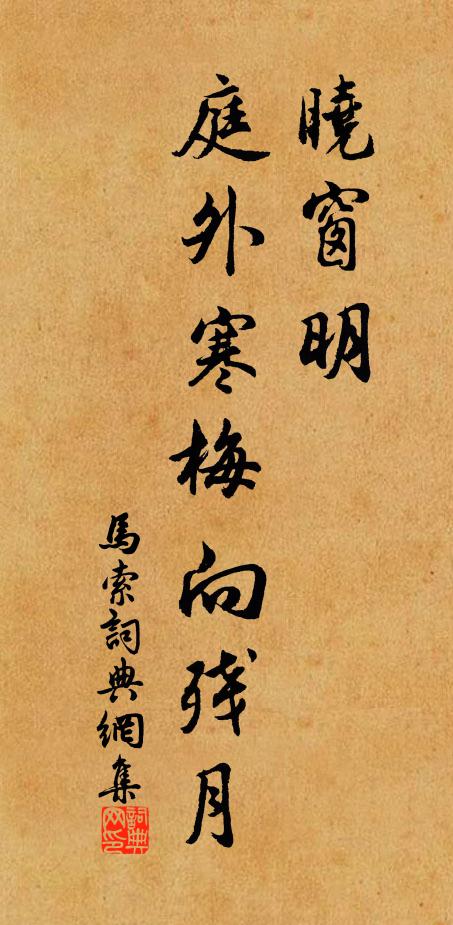 曉窗明
庭外寒梅向残月
馬索詞典網集
詞典网印